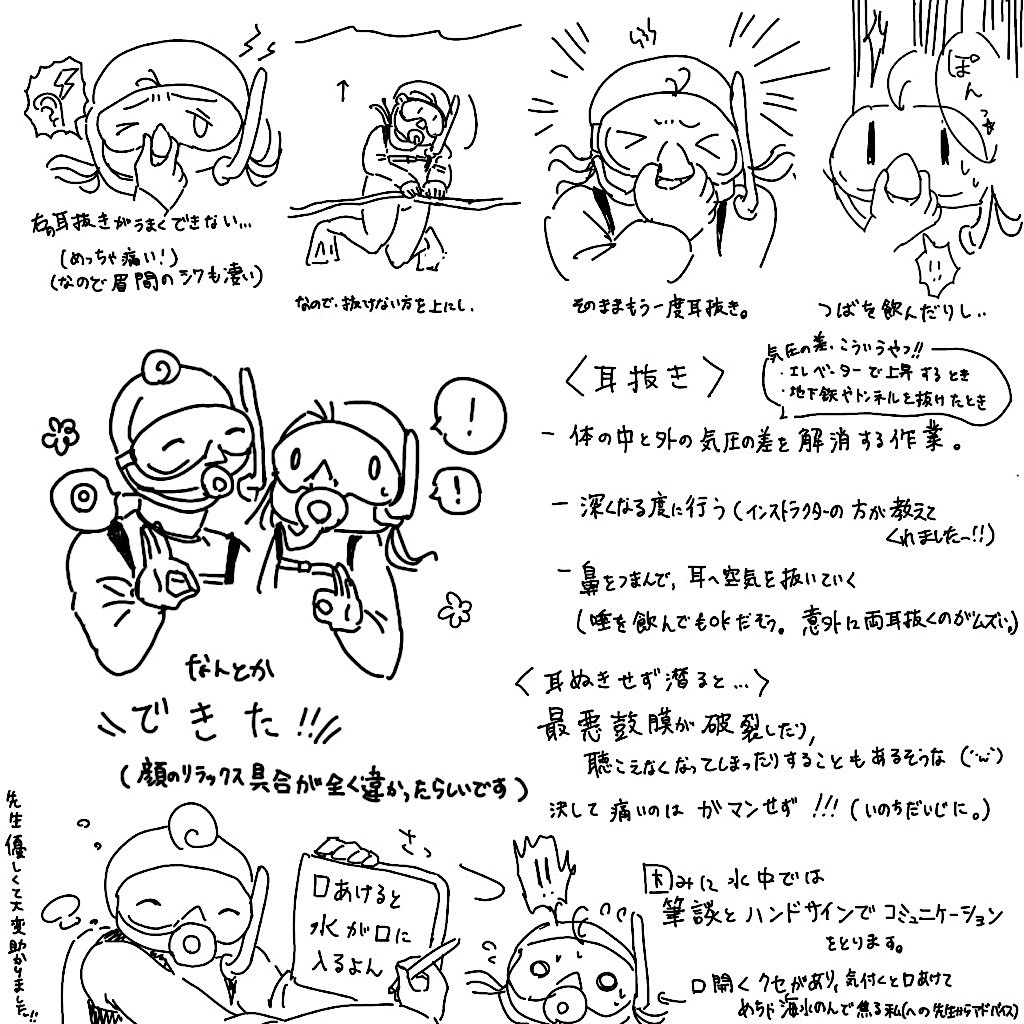 右の耳抜きがうまくできない…
(めっちゃ痛い!)
(なので眉間のシワも凄い)
なので、抜けない方を上にし、
そのままもう一度耳抜き。
ぽんっ
!!
つばを飲んだりし、、
気圧の差、こういうやつ!!
・エレベーターで上昇するとき
・地下鉄やトンネルを抜けたとき
〈耳抜き〉
- 体の中と外の気圧の差を解消する作業。
- 深くなる度に行う(インストラクターの方が教えて
くれました〜!!)
- 鼻をつまんで、耳へ空気を抜いていく
(唾を飲んでもOKだそう。意外に両耳抜くのがムズい。)
!
!
なんとか
\\できた!!//
(顔のリラックス具合が全く違かったらしいです)
〈耳ぬきせず潜ると…〉
最悪鼓膜が破裂したり、
聴こえなくなってしまったりすることもあるそうな(´`ω´`)
決して痛いのはガマンせず!!!(いのちだいじに。)
先生優しくて大変助かりました〜!!
さっ
口あけると
水が口に
入るよん
!!!
因みに水中では
筆談とハンドサインでコミュニケーション
をとります。
←口開くクセがあり、気付くと口あけて
めちゃ海水のんで焦る私(への先生からアドバイス)